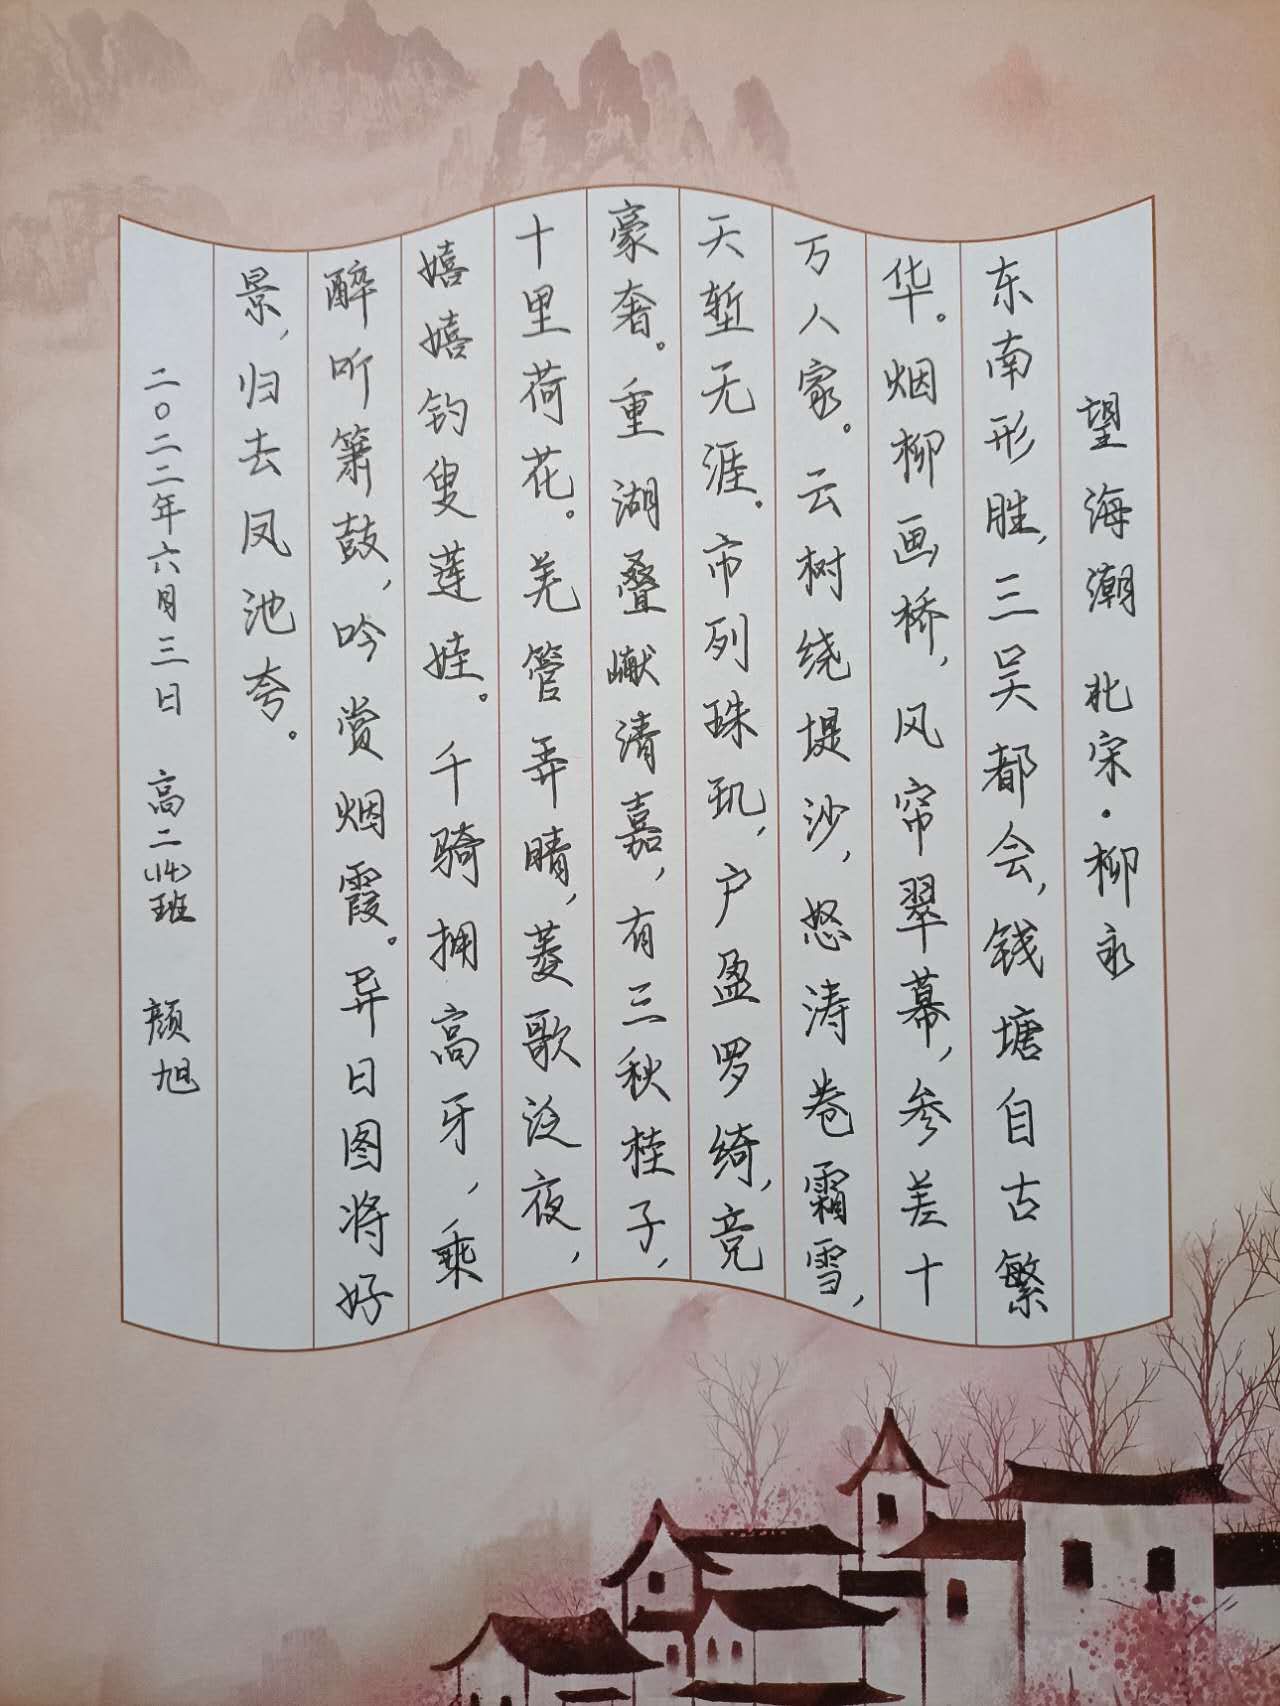 望海潮 北宋·柳永
东南形胜,三吴都会,钱塘自古繁
华。烟柳画桥,风帘翠幕,参差十
万人家。云树绕堤沙,怒涛卷霜雪,
天堑无涯。市列珠玑,户盈罗绮,竞
豪奢。重湖叠巘清嘉,有三秋桂子,
十里荷花。羌管弄晴,菱歌泛夜,
嬉嬉钓叟莲娃。千骑拥高牙,乘
醉听箫鼓,吟赏烟霞。异日图将好
景,归去凤池夸。
二〇二二年六月三日 高二(14)班 颜旭